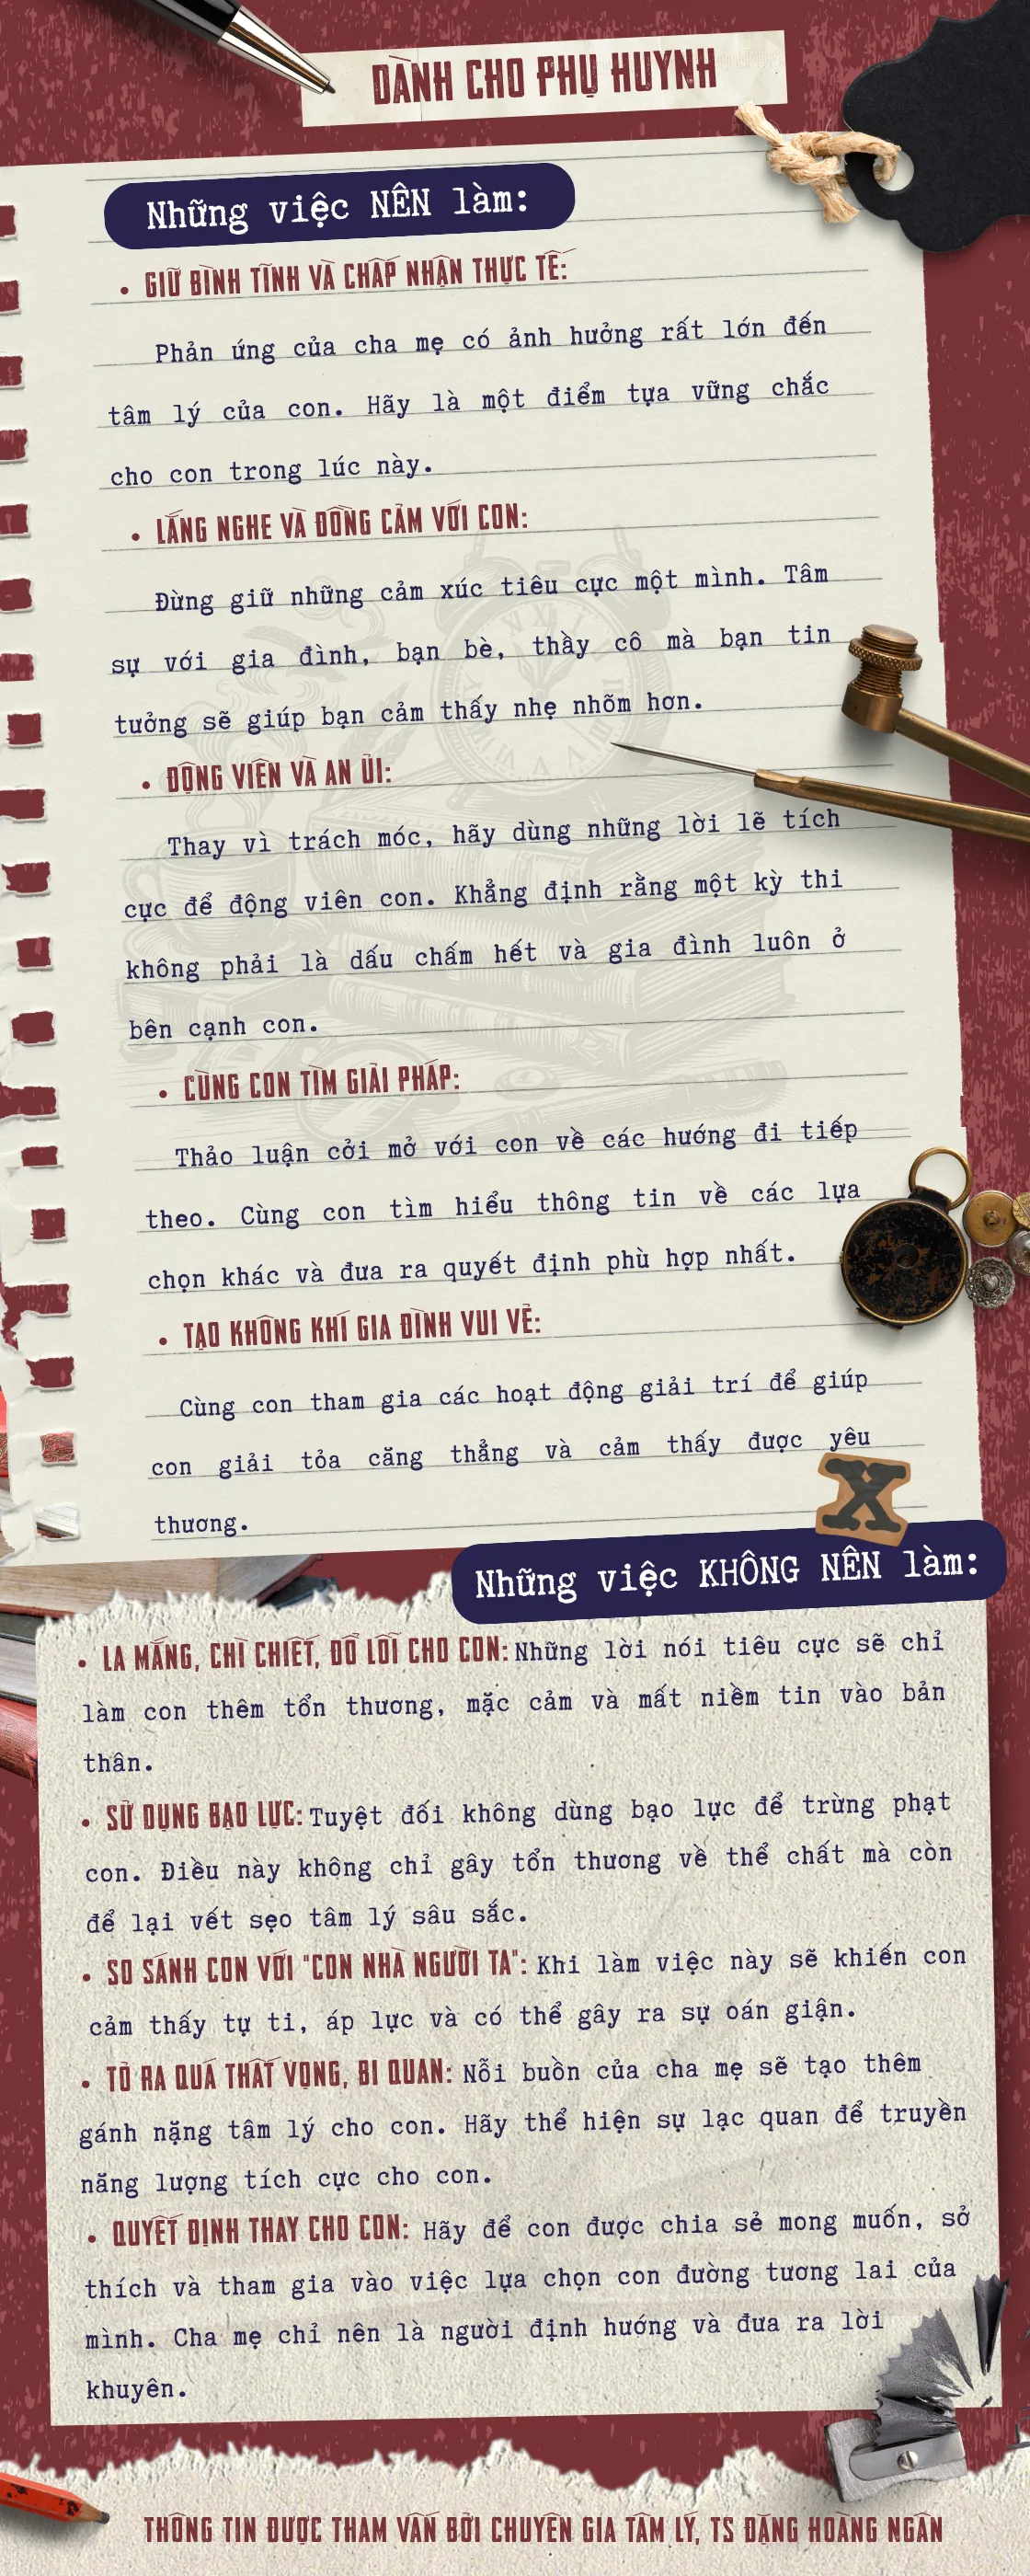 DÀNH CHO PHỤ HUYNH
Những việc NÊN làm:
• GIỮ BÌNH TĨNH VÀ CHẤP NHẬN THỰC TẾ:
Phản ứng của cha mẹ có ảnh hưởng rất lớn đến
tâm lý của con. Hãy là một điểm tựa vững chắc
cho con trong lúc này.
• LẮNG NGHE VÀ ĐỒNG CẢM VỚI CON:
Đừng giữ những cảm xúc tiêu cực một mình. Tâm
sự với gia đình, bạn bè, thầy cô mà bạn tin
tưởng sẽ giúp bạn cảm thấy nhẹ nhõm hơn.
• ĐỘNG VIÊN VÀ AN ỦI:
Thay vì trách móc, hãy dùng những lời lẽ tích
cực để động viên con. Khẳng định rằng một kỳ thi
không phải là dấu chấm hết và gia đình luôn ở
bên cạnh con.
• CÙNG CON TÌM GIẢI PHÁP:
Thảo luận cởi mở với con về các hướng đi tiếp
theo. Cùng con tìm hiểu thông tin về các lựa
chọn khác và đưa ra quyết định phù hợp nhất.
• TẠO KHÔNG KHÍ GIA ĐÌNH VUI VẺ:
Cùng con tham gia các hoạt động giải trí để giúp
con giải tỏa căng thẳng và cảm thấy được yêu
thương.
X
Những việc KHÔNG NÊN làm:
• LA MẮNG, CHÌ CHIẾT, ĐỔ LỖI CHO CON: Những lời nói tiêu cực sẽ chỉ
làm con thêm tổn thương, mặc cảm và mất niềm tin vào bản
thân.
• SỬ DỤNG BẠO LỰC: Tuyệt đối không dùng bạo lực để trừng phạt
con. Điều này không chỉ gây tổn thương về thể chất mà còn
để lại vết sẹo tâm lý sâu sắc.
• SO SÁNH CON VỚI "CON NHÀ NGƯỜI TA": Khi làm việc này sẽ khiến con
cảm thấy tự ti, áp lực và có thể gây ra sự oán giận.
• TỎ RA QUÁ THẤT VỌNG, BI QUAN: Nỗi buồn của cha mẹ sẽ tạo thêm
gánh nặng tâm lý cho con. Hãy thể hiện sự lạc quan để truyền
năng lượng tích cực cho con.
• QUYẾT ĐỊNH THAY CHO CON: Hãy để con được chia sẻ mong muốn, sở
thích và tham gia vào việc lựa chọn con đường tương lai của
mình. Cha mẹ chỉ nên là người định hướng và đưa ra lời
khuyên.
THÔNG TIN ĐƯỢC THAM VẤN BỞI CHUYÊN GIA TÂM LÝ, TS ĐẶNG HOÀNG NGÂN